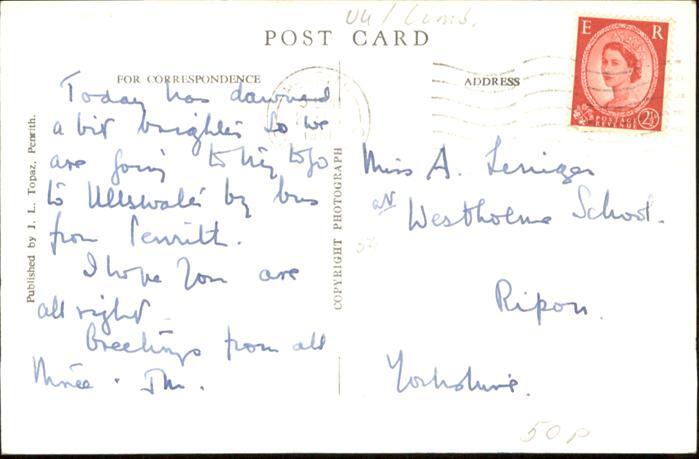 UU / Cumb.
POST CARD
FOR CORRESPONDENCE
ADDRESS
E R
POSTAGE
REVENUE
2½
Today has dawned
a bit brighter so we
are going to try to go
to Ullswater by bus
from Penrith.
I hope you are
all right
Greetings from all
three.
Miss A.
at Westholme School.
Ripon.
Yorkshire.
Published by J. L. Topaz, Penrith.
COPYRIGHT PHOTOGRAPH
50p